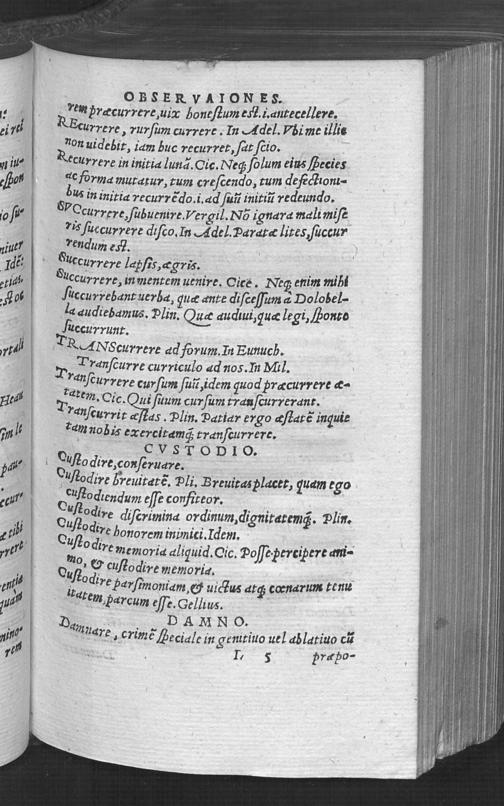 OBSERVAIONES.
rem præcurrere, uix honestum est. i. antecellere.
REcurrere, rursum currere. In Adel. Vbi me illic
non uidebit, iam huc recurret, sat scio.
Recurrere in initia lunā. Cic. Neq; solum eius species
ac forma mutatur, tum crescendo, tum defectioni-
bus in initia recurrēdo. i. ad suū initiū redeundo.
SVCcurrere, subuenire. Vergil. Nō ignara mali mise
ris succurrere disco. In Adel. Paratæ lites, succur
rendum est.
Succurrere lapsis, ægris.
Succurrere, in mentem uenire. Cice. Neq; enim mihi
succurrebant uerba, quæ ante discessum à Dolobel-
la audiebamus. Plin. Quæ audiui, quæ legi, sponte
succurrunt.
TRANScurrere ad forum. In Eunuch.
Transcurre curriculo ad nos. In Mil.
Transcurrere cursum suū, idem quod præcurrere æ-
tatem. Cic. Qui suum cursum transcurrerant.
Transcurrit æstas. Plin. Patiar ergo æstatē inquie
tam nobis exercitamq; transcurrere.
CVSTODIO.
Custodire, conseruare.
Custodire breuitatē. Pli. Breuitas placet, quam ego
custodiendum esse confiteor.
Custodire discrimina ordinum, dignitatemq;. Plin.
Custodire honorem inimici. Idem.
Custodire memoria aliquid. Cic. Posse percipere ani-
mo, & custodire memoria.
Custodire parsimoniam, & uictus atq; cœnarum tenu
itatem, parcum esse. Gellius.
DAMNO.
Damnare, crimē speciale in genitiuo uel ablatiuo cū
L 5 præpo-